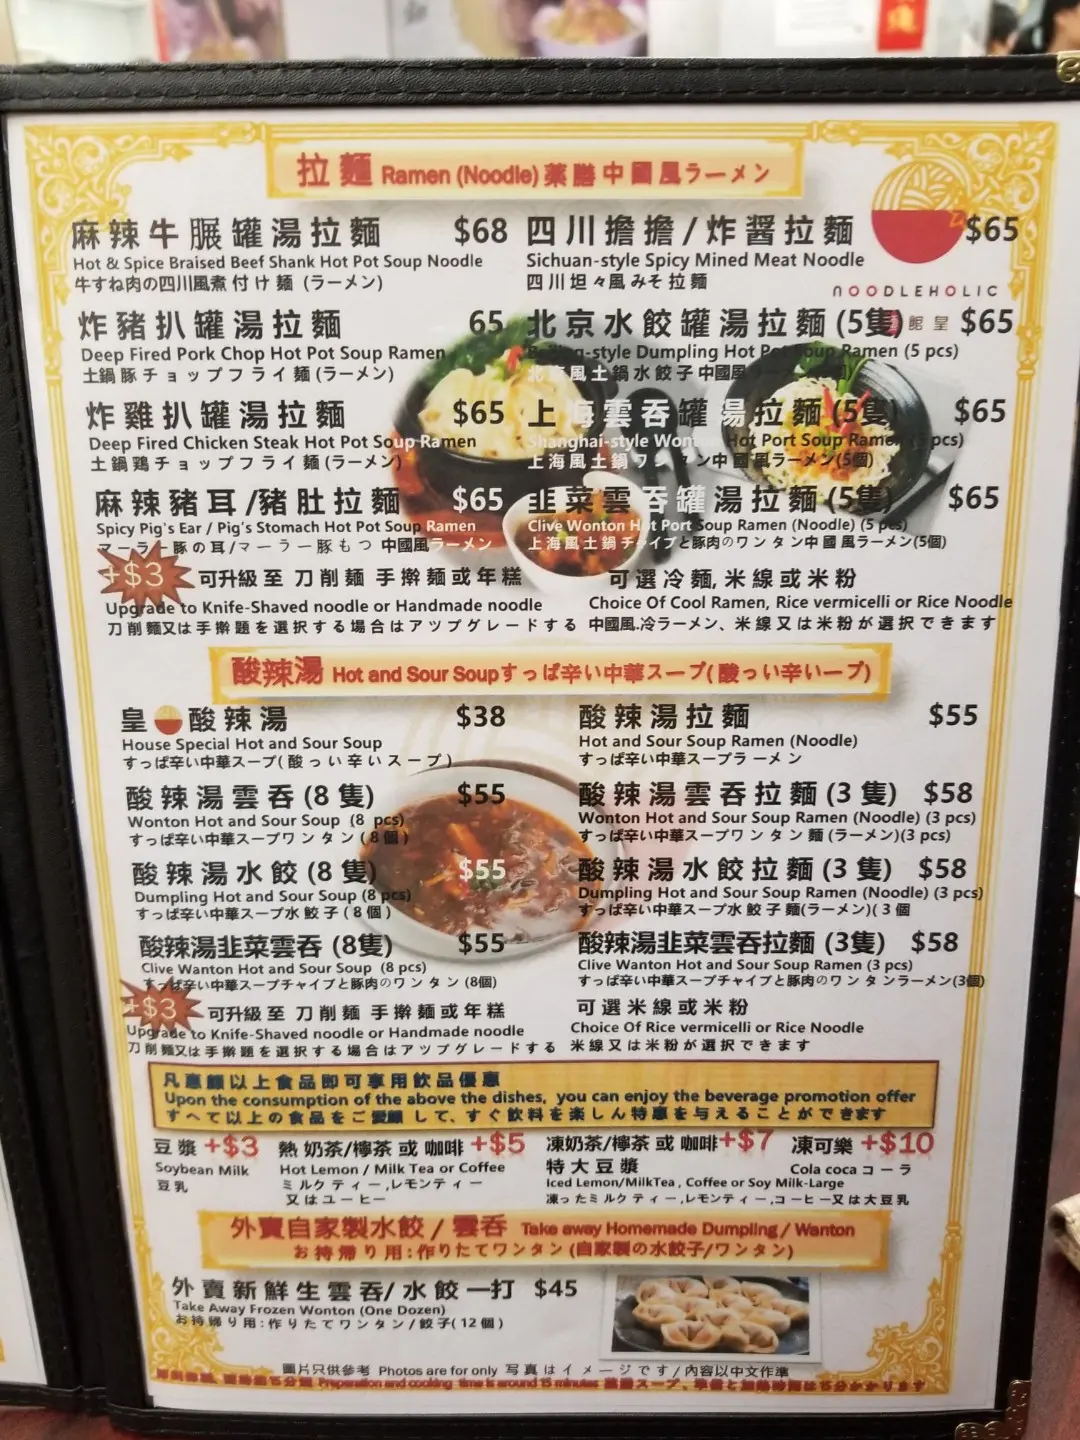 拉麵 Ramen (Noodle) 薬膳中國風ラーメン
麻辣牛𦟌罐湯拉麵 $68
Hot & Spice Braised Beef Shank Hot Pot Soup Noodle
牛すね肉の四川風煮付け麺 (ラーメン)
四川擔擔/炸醬拉麵 $65
Sichuan-style Spicy Mined Meat Noodle
四川坦々風みそ拉麵
NOODLEHOLIC
炸豬扒罐湯拉麵 65
Deep Fired Pork Chop Hot Pot Soup Ramen
土鍋豚チョップフライ麺 (ラーメン)
北京水餃罐湯拉麵 (5隻) $65
Beijing-style Dumpling Hot Pot Soup Ramen (5 pcs)
北京風土鍋水餃子中國風
炸雞扒罐湯拉麵 $65
Deep Fired Chicken Steak Hot Pot Soup Ramen
土鍋鶏チョップフライ麺 (ラーメン)
上海雲吞罐湯拉麵 (5隻) $65
Shanghai-style Wonton Hot Port Soup Ramen (5 pcs)
上海風土鍋ワンタン中國風ラーメン(5個)
麻辣豬耳/豬肚拉麵 $65
Spicy Pig's Ear / Pig's Stomach Hot Pot Soup Ramen
マーラー豚の耳/マーラー豚もつ 中國風ラーメン
韭菜雲吞罐湯拉麵 (5隻) $65
Clive Wonton Hot Port Soup Ramen (Noodle) (5 pcs)
上海風土鍋チャイブと豚肉のワンタン中國風ラーメン(5個)
+$3 可升級至 刀削麵 手擀麵或年糕
Upgrade to Knife-Shaved noodle or Handmade noodle
刀削麵又は手擀題を選択する場合はアツプグレードする
可選冷麵, 米線或米粉
Choice Of Cool Ramen, Rice vermicelli or Rice Noodle
中國風.冷ラーメン、米線又は米粉が選択できます
酸辣湯 Hot and Sour Soupすっぱ辛い中華スープ(酸っい辛いープ)
皇 酸辣湯 $38
House Special Hot and Sour Soup
すっぱ辛い中華スープ(酸っい辛いスープ)
酸辣湯拉麵 $55
Hot and Sour Soup Ramen (Noodle)
すっぱ辛い中華スープラーメン
酸辣湯雲吞 (8隻) $55
Wonton Hot and Sour Soup (8 pcs)
すっぱ辛い中華スープワンタン(8個)
酸辣湯雲吞拉麵 (3隻) $58
Wonton Hot and Sour Soup Ramen (Noodle) (3 pcs)
すっぱ辛い中華スープワンタン麵 (ラーメン)(3 pcs)
酸辣湯水餃 (8隻) $55
Dumpling Hot and Sour Soup (8 pcs)
すっぱ辛い中華スープ水餃子(8個)
酸辣湯水餃拉麵 (3隻) $58
Dumpling Hot and Sour Soup Ramen (Noodle) (3 pcs)
すっぱ辛い中華スープ水餃子麵(ラーメン)(3個
酸辣湯韭菜雲吞 (8隻) $55
Clive Wanton Hot and Sour Soup (8 pcs)
すっぱ辛い中華スープチャイブと豚肉のワンタン (8個)
酸辣湯韭菜雲吞拉麵 (3隻) $58
Clive Wanton Hot and Sour Soup Ramen (3 pcs)
すっぱ辛い中華スープチャイブと豚肉のワンタンラーメン(3個)
+$3 可升級至 刀削麵 手擀麵或年糕
Upgrade to Knife-Shaved noodle or Handmade noodle
刀削麵又は手擀題を選択する場合はアツプグレードする
可選米線或米粉
Choice Of Rice vermicelli or Rice Noodle
米線又は米粉が選択できます
凡惠顧以上食品即可享用飲品優惠
Upon the consumption of the above the dishes, you can enjoy the beverage promotion offer
すべて以上の食品をご愛顧 して、すぐ飲料を楽しん特惠を与えることができます
豆漿 +$3
Soybean Milk
豆乳
熱奶茶/檸茶 或 咖啡 +$5
Hot Lemon / Milk Tea or Coffee
ミルクティー,レモンティー
又はユーヒー
凍奶茶/檸茶 或 咖啡 +$7
特大豆漿
Iced Lemon/MilkTea , Coffee or Soy Milk-Large
凍ったミルクティー,レモンティー,コーヒー又は大豆乳
凍可樂 +$10
Cola coca コーラ
外賣自家製水餃 / 雲吞 Take away Homemade Dumpling / Wanton
お持帰り用:作りたてワンタン (自家製の水餃子/ワンタン)
外賣新鮮生雲吞/水餃一打 $45
Take Away Frozen Wonton (One Dozen)
お持帰り用:作りたてワンタン/餃子(12個)
圖片只供參考 Photos are for only 写真はイメージです/內容以中文作準
Preperation and cooking time is around 15 minutes